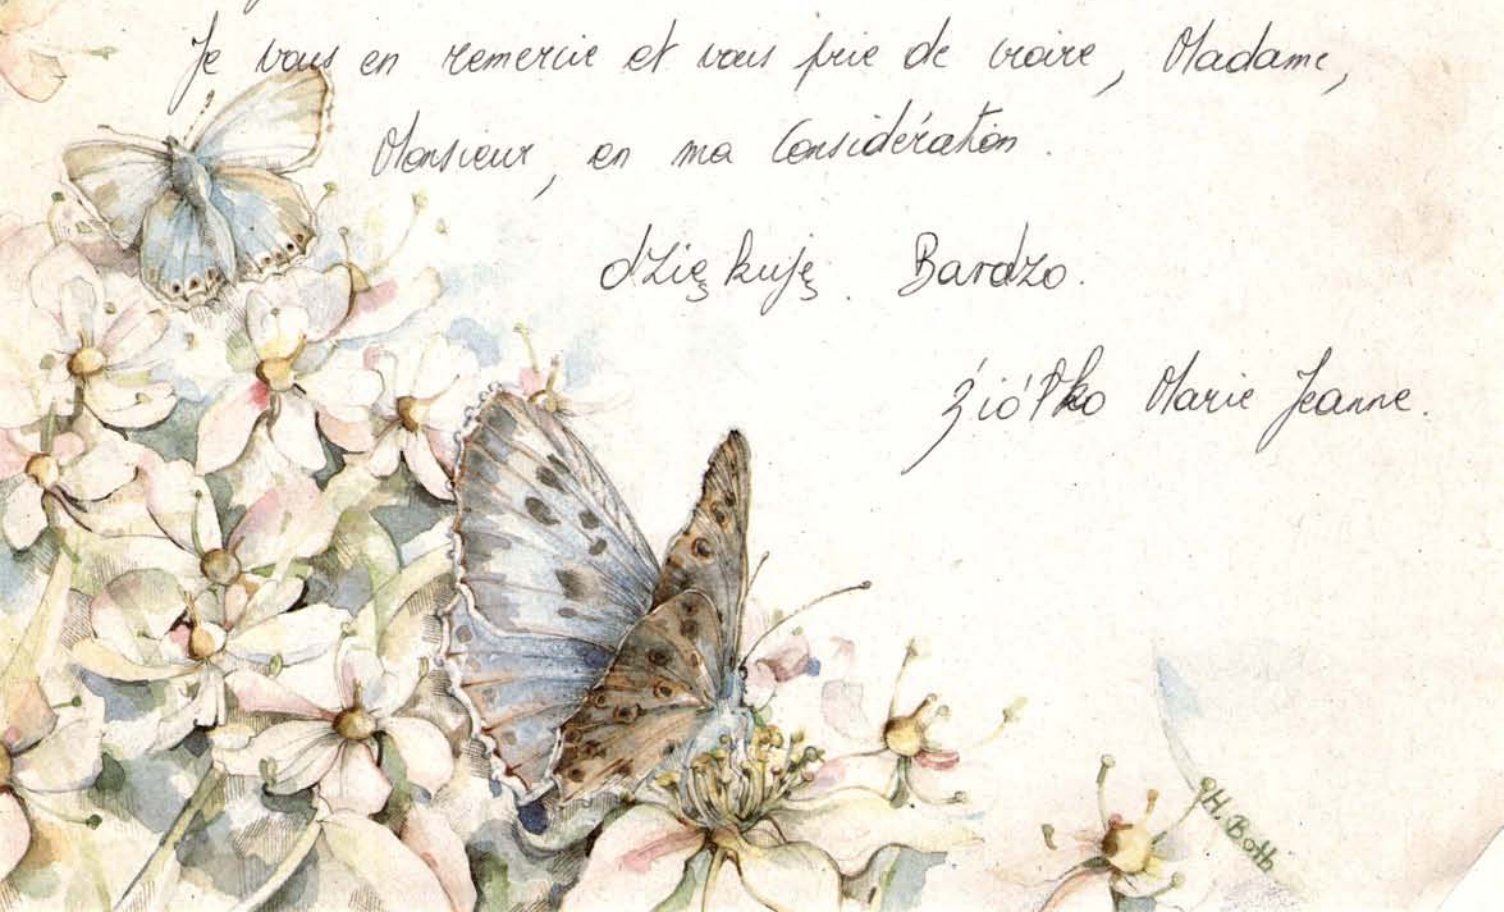 Je vous en remercie et vous prie de croire, Madame,
Monsieur, en ma Considération.
dziękuję. Bardzo.
Ziółko Marie Jeanne.
H. Both